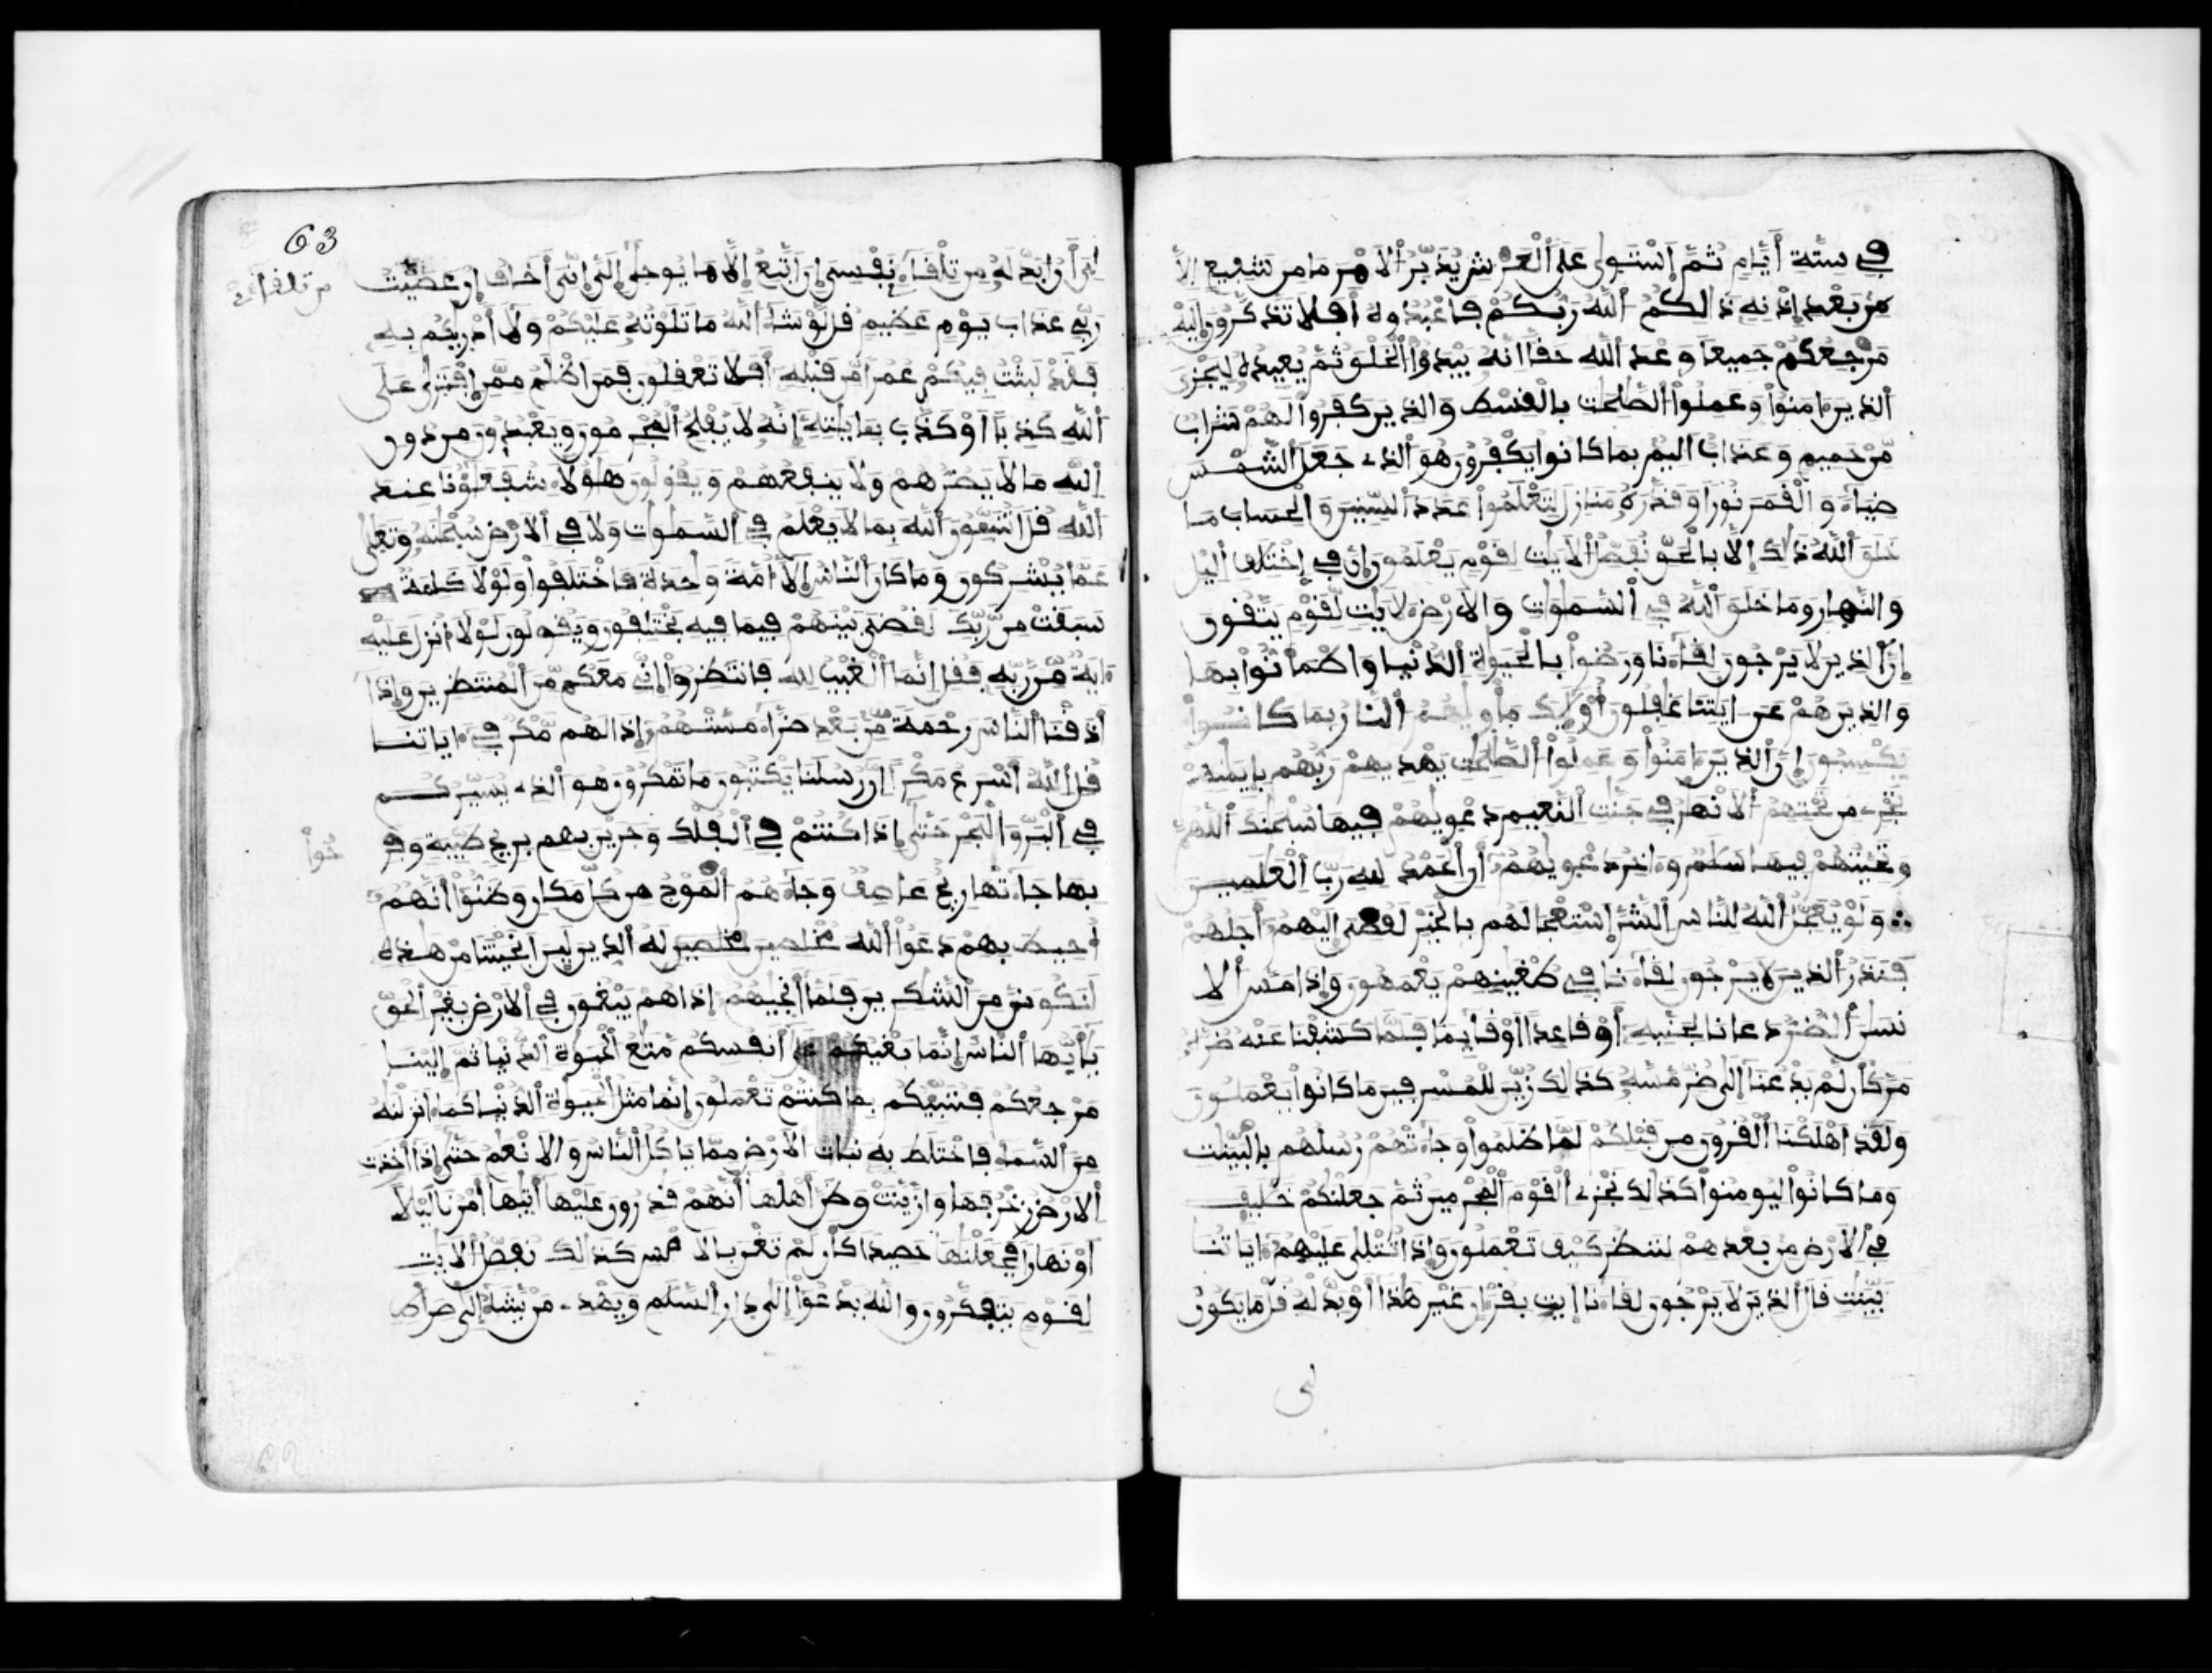 في ستة أيام ثم استوى على العرش يدبر الامر ما من شفيع الا
من بعد إذنه ذالكم الله ربكم فاعبدوه أفلا تذكرون إليه
مرجعكم جميعا وعد الله حقا انه يبدؤا الخلق ثم يعيده ليجزى
الذين ءامنوا وعملوا الصلحت بالقسط والذين كفروا لهم شراب
من حميم وعذاب اليم بما كانوا يكفرون هو الذى جعل الشمس
ضياء والقمر نورا وقدره منازل لتعلموا عدد السنين والحساب ما
خلق الله ذلك إلا بالحق نفصل الايت لقوم يعلمون إن في إختلف اليل
والنهار وما خلق الله في السموات والارض لايت لقوم يتقون
إن الذين لا يرجون لقاءنا ورضوا بالحيوة الدنيا واطمأنوا بها
والذين هم عن ايتنا غفلون أوليك مأويهم النار بما كانوا
يكسبون إن الذين ءامنوا وعملوا الصلحت يهديهم ربهم بإيمنهم
تجرى من تحتهم الانهر في جنت النعيم دعويهم فيها سبحنك اللهم
وتحيتهم فيها سلم وءاخر دعويهم أن الحمد لله رب العلمين
ولو يعجل الله للناس الشر إستعجالهم بالخير لقضى إليهم أجلهم
فنذر الذين لا يرجون لقاءنا في طغينهم يعمهون وإذا مس الا
نسن الضر دعانا لجنبه أو قاعدا او قايما فلما كشفنا عنه ضره
مر كأن لم يدعنا إلى ضر مسه كذلك زين للمسرفين ما كانوا يعملون
ولقد اهلكنا القرون من قبلكم لما ظلموا وجاءتهم رسلهم بالبينت
وما كانوا ليومنوا كذلك نجزى القوم المجرمين ثم جعلنكم خليف
في الارض من بعدهم لننظر كيف تعملون وإذا تتلى عليهم ءاياتنا
بينت قال الذين لا يرجون لقاءنا إيت بقرءان غير هذا أو بدله قل ما يكون
لى
63
لى أن ابدله من تلقاء نفسى إن اتبع إلا ما يوحى إلى إنى أخاف إن عصيت
من تلقاءى
ربى عذاب يوم عظيم قل لو شاء الله ما تلوته عليكم ولا أدريكم به
فقد لبثت فيكم عمرا من قبله أفلا تعقلون فمن اظلم ممن إفترى على
الله كذبا او كذب بئايته إنه لا يفلح المجرمون ويعبدون من دون
الله ما لا يضرهم ولا ينفعهم ويقولون هؤلاء شفعؤنا عند
الله قل اتنبئون الله بما لا يعلم في السموات ولا في الارض سبحنه وتعلى
عما يشركون وما كان الناس إلا أمة وحدة فاختلفوا ولولا كلمة
سبقت من ربك لقضى بينهم فيما فيه يختلفون ويقولون لولا أنزل عليه
ءاية من ربه فقل إنما الغيب لله فانتظروا إنى معكم من المنتظرين وإذا
أذقنا الناس رحمة من بعد ضراء مستهم إذا لهم مكر في ءاياتنا
قل الله أسرع مكرا إن رسلنا يكتبون ما تمكرون هو الذى يسيركم
في البر والبحر حتى إذا كنتم في الفلك وجرين بهم بريح طيبة وفر
حوا
بها جاءتها ريح عاصف وجاءهم الموج من كل مكان وظنوا أنهم
أحيط بهم دعوا الله مخلصين مخلصين له الدين لين انجيتنا من هذه
لنكونن من الشكرين فلما أنجيهم إذا هم يبغون في الارض بغير الحق
يأيها الناس إنما بغيكم على أنفسكم متع الحيوة الدنيا ثم إلينا
مرجعكم فننبئكم بما كنتم تعملون إنما مثل الحيوة الدنيا كماء انزلنه
من السماء فاختلط به نبات الارض مما ياكل الناس والانعم حتى إذا أخذت
الارض زخرفها وازينت وظن أهلها أنهم قدرون عليها أتيها أمرنا ليلا
أو نهارا فجعلنها حصيدا كأن لم تغن بالامس كذالك نفصل الايت
لقوم يتفكرون والله يدعوا إلى دار السلم ويهدى من يشاء إلى صراط